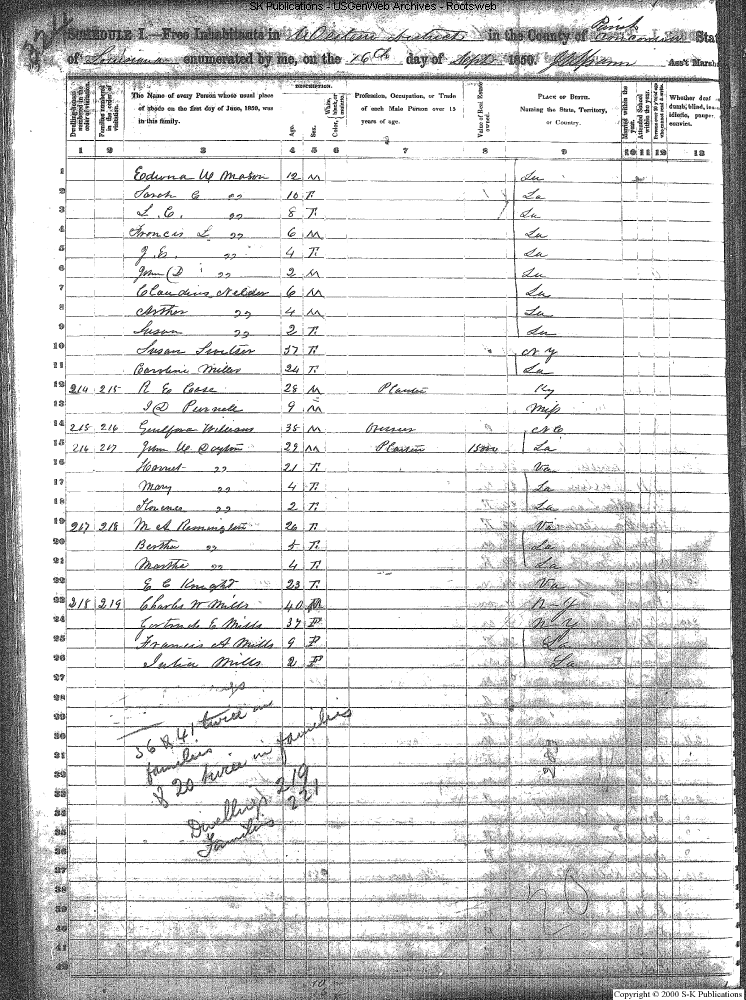 SK Publications - USGenWeb Archives - Rootsweb
SCHEDULE I.—Free Inhabitants in Western District in the County of Parish State
of Louisiana enumerated by me, on the 16th day of Sept 1850. Ass't Marshal
DESCRIPTION.
Dwelling-houses numbered in the order of visitation.
Families numbered in the order of visitation.
The Name of every Person whose usual place of abode on the first day of June, 1850, was in this family.
Age.
Sex.
White, black, or mulatto. Color,
Profession, Occupation, or Trade of each Male Person over 15 years of age.
Value of Real Estate owned.
PLACE OF BIRTH. Naming the State, Territory, or Country.
Married within the year.
Attended School within the year.
Whether deaf dumb, blind, idiotic, pauper convict.
1 2 3 4 5 6 7 8 9 10 11 12 13
1 Edwina W Mason 12 M La
2 Sarah C " 10 F La
3 L. C. " 8 F La
4 Francis L " 6 M La
5 J. E. " 4 F La
6 John D " 2 M La
7 Claudius 6 M La
8 Arther " 4 M La
9 Susan " 2 F La
10 Susan 57 F N Y
11 Caroline Miller 24 F La
12 214 215 R E Case 28 M Planter Ky
13 I D Purnell 9 M Miss
14 215 216 Williams 35 M N C
15 216 217 John W Dayton 29 M Planter La
16 Harriet " 21 F Va
17 Mary " 4 F La
18 Florence " 2 F La
19 217 218 M A Remington 26 F Va
20 Bertha " 5 F La
21 Martha " 4 F La
22 E C Knight 23 F Va
23 218 219 Charles W Mills 40 M N-Y
24 Gertrude E Mills 37 F N-Y
25 Francis A Mills 9 F La
26 Julia Mills 2 F La
27
28
29
30
31
32
33
34
35
36
37
38
39
40
41
42
36 & 41 twice in
families
& 20 twice in families
Dwellings 219
Families 221
Copyright © 2000 S-K Publications